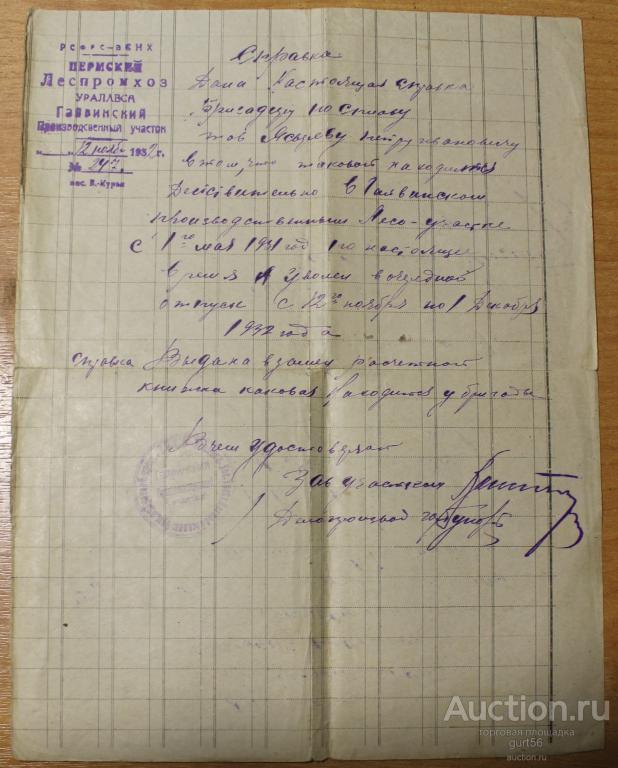 РСФСР-ВСНХ
ПЕРМСКИЙ
Леспромхоз
УРАЛЛЕСА
Гайвинский
Производственный участок
"12" ноября 1932 г.
№
пос. В.-Курья
Справка
Дана Настоящая справка
Бригадиру по сплаву
тов Петру Ивановичу
в том, что таковой находится
Действительно в Гайвинском
производственным Лесо-участке
с 1го мая 1931 год по настояще
время и уволен в очередной
отпуск с 12го ноября по 1 Декабря
1932 года
справка Выдана взамен расчетной
книжка каковая Находится у бригады
В чем удостоверяет
Зав участком
Делопроизвод
Auction.ru
торговая площадка
gurt56
auction.ru